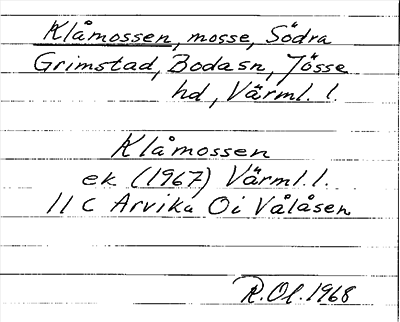 Klåmossen, mosse, Södra
Grimstad, Bodasn, Jösse
hd, Värml. l.
Klåmossen
ek (1967) Värml. l.
11 C Arvika Oi Vålåsen
R.Ol. 1968